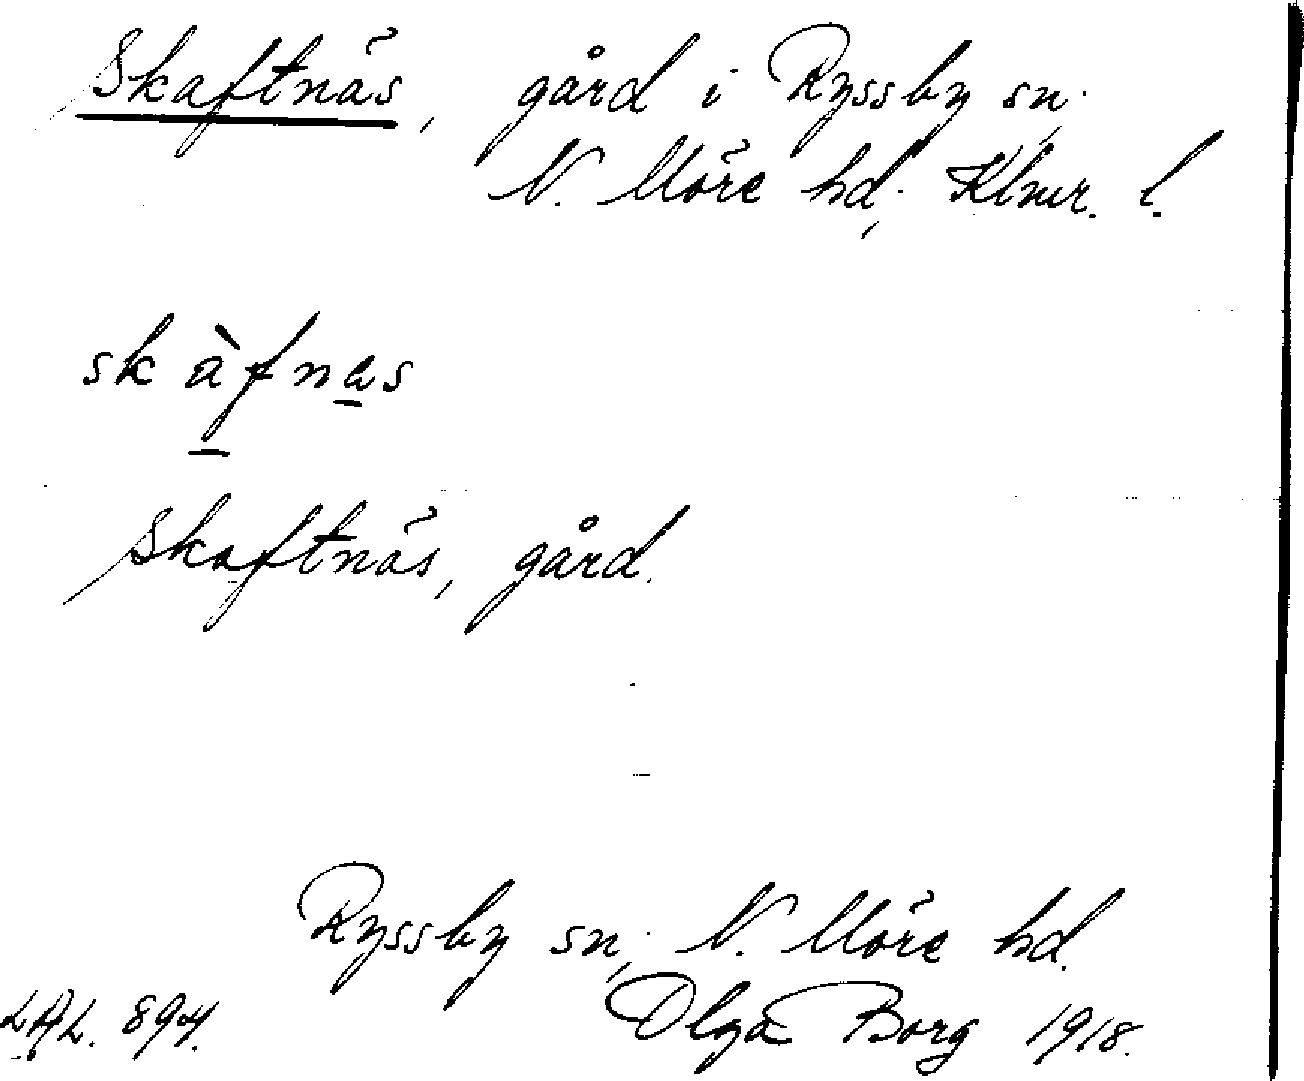 Skaftnäs, gård i Ryssby sn.,
N. Möre hd., Klmr. l.
skàfnas
Skaftnäs, gård.
Ryssby sn., N. Möre hd.
LAL. 894. Olga Borg 1918.